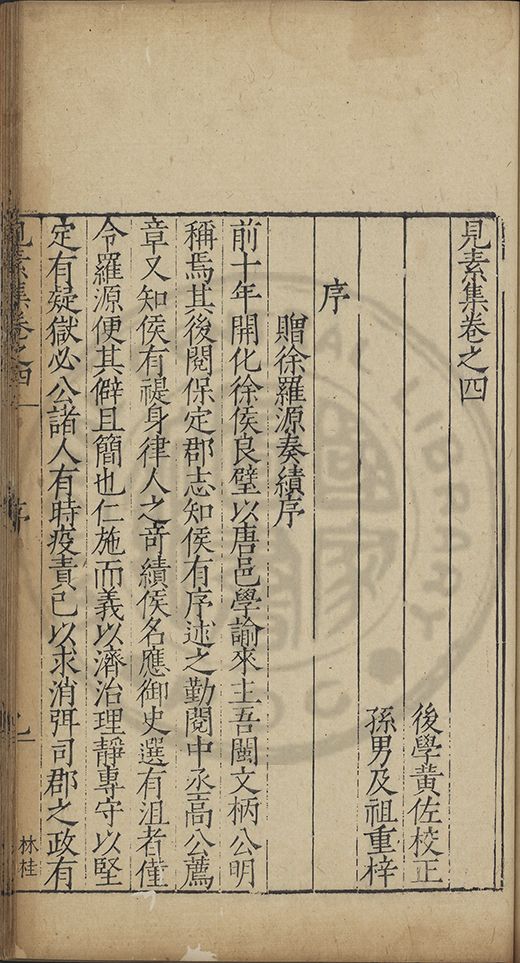 見素集卷之四
後學黃佐校正
孫男及祖重梓
序
贈徐羅源奏績序
前十年開化徐侯良璧以唐邑學諭來主吾閩文柄公明
稱焉其後閱保定郡志知侯有序述之勤閱中丞高公薦
章又知侯有禔身律人之奇績侯名應御史選有沮者僅
令羅源便其僻且簡也仁施而義以濟治理靜專守以堅
定有疑獄必公諸人有時疫責已以求消弭司郡之政有
見素集卷之四
序
林桂